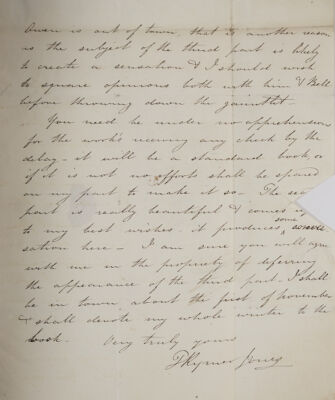 Owen is out of town, that is another reason
as the subject of the third part is likely
to create a sensation & I should wish
to square opinions both with him & Bell
before throwing down the gauntlet.
You need be under no apprehension
for the work's receiving any check by the
delay - it will be a standard book, or
if it is not no efforts shall be spared
on my part to make it so - The
part is really beautiful & comes up
to my best wishes - it produces some
sation here - I am sure you will agree
with me in the propriety of deferring
the appearance of the third part. I shall
be in town about the first of November
& shall devote my whole winter to the
book. Very truly yours
T Rymer Jones